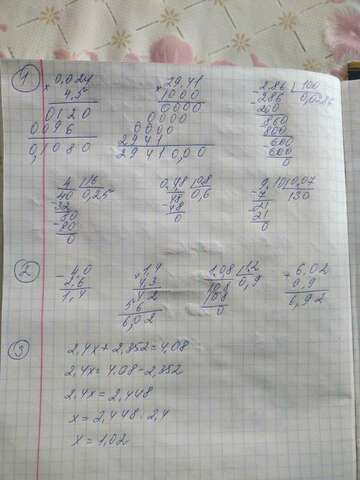 1
× 0,024
4,5
0120
0096
0,1080
× 29,41
1000
0000
0000
0000
2941
29410,00
2,86 | 100
286 0,0286
200
860
800
-600
600
0
4 | 16
40 0,25
-32
80
-80
0
0,48 | 0,8
48 0,6
-48
0
9,10 | 0,07
-7 130
21
-21
0
2
- 4,0
2,6
1,4
× 1,4
4,3
42
56
6,02
1,08 | 1,2
0,9
108
0
+ 6,02
0,9
6,92
3
2,4x + 2,352 = 4,08
2,4x = 4,08 - 2,352
2,4x = 2,448
x = 2,448 : 2,4
x = 1,02